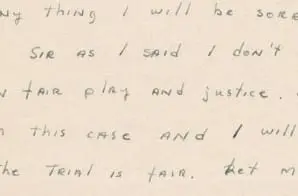 ny thing I will be sore
Sir as I said I don't
fair play and justice.
this case and I will
the Trial is fair. Let m